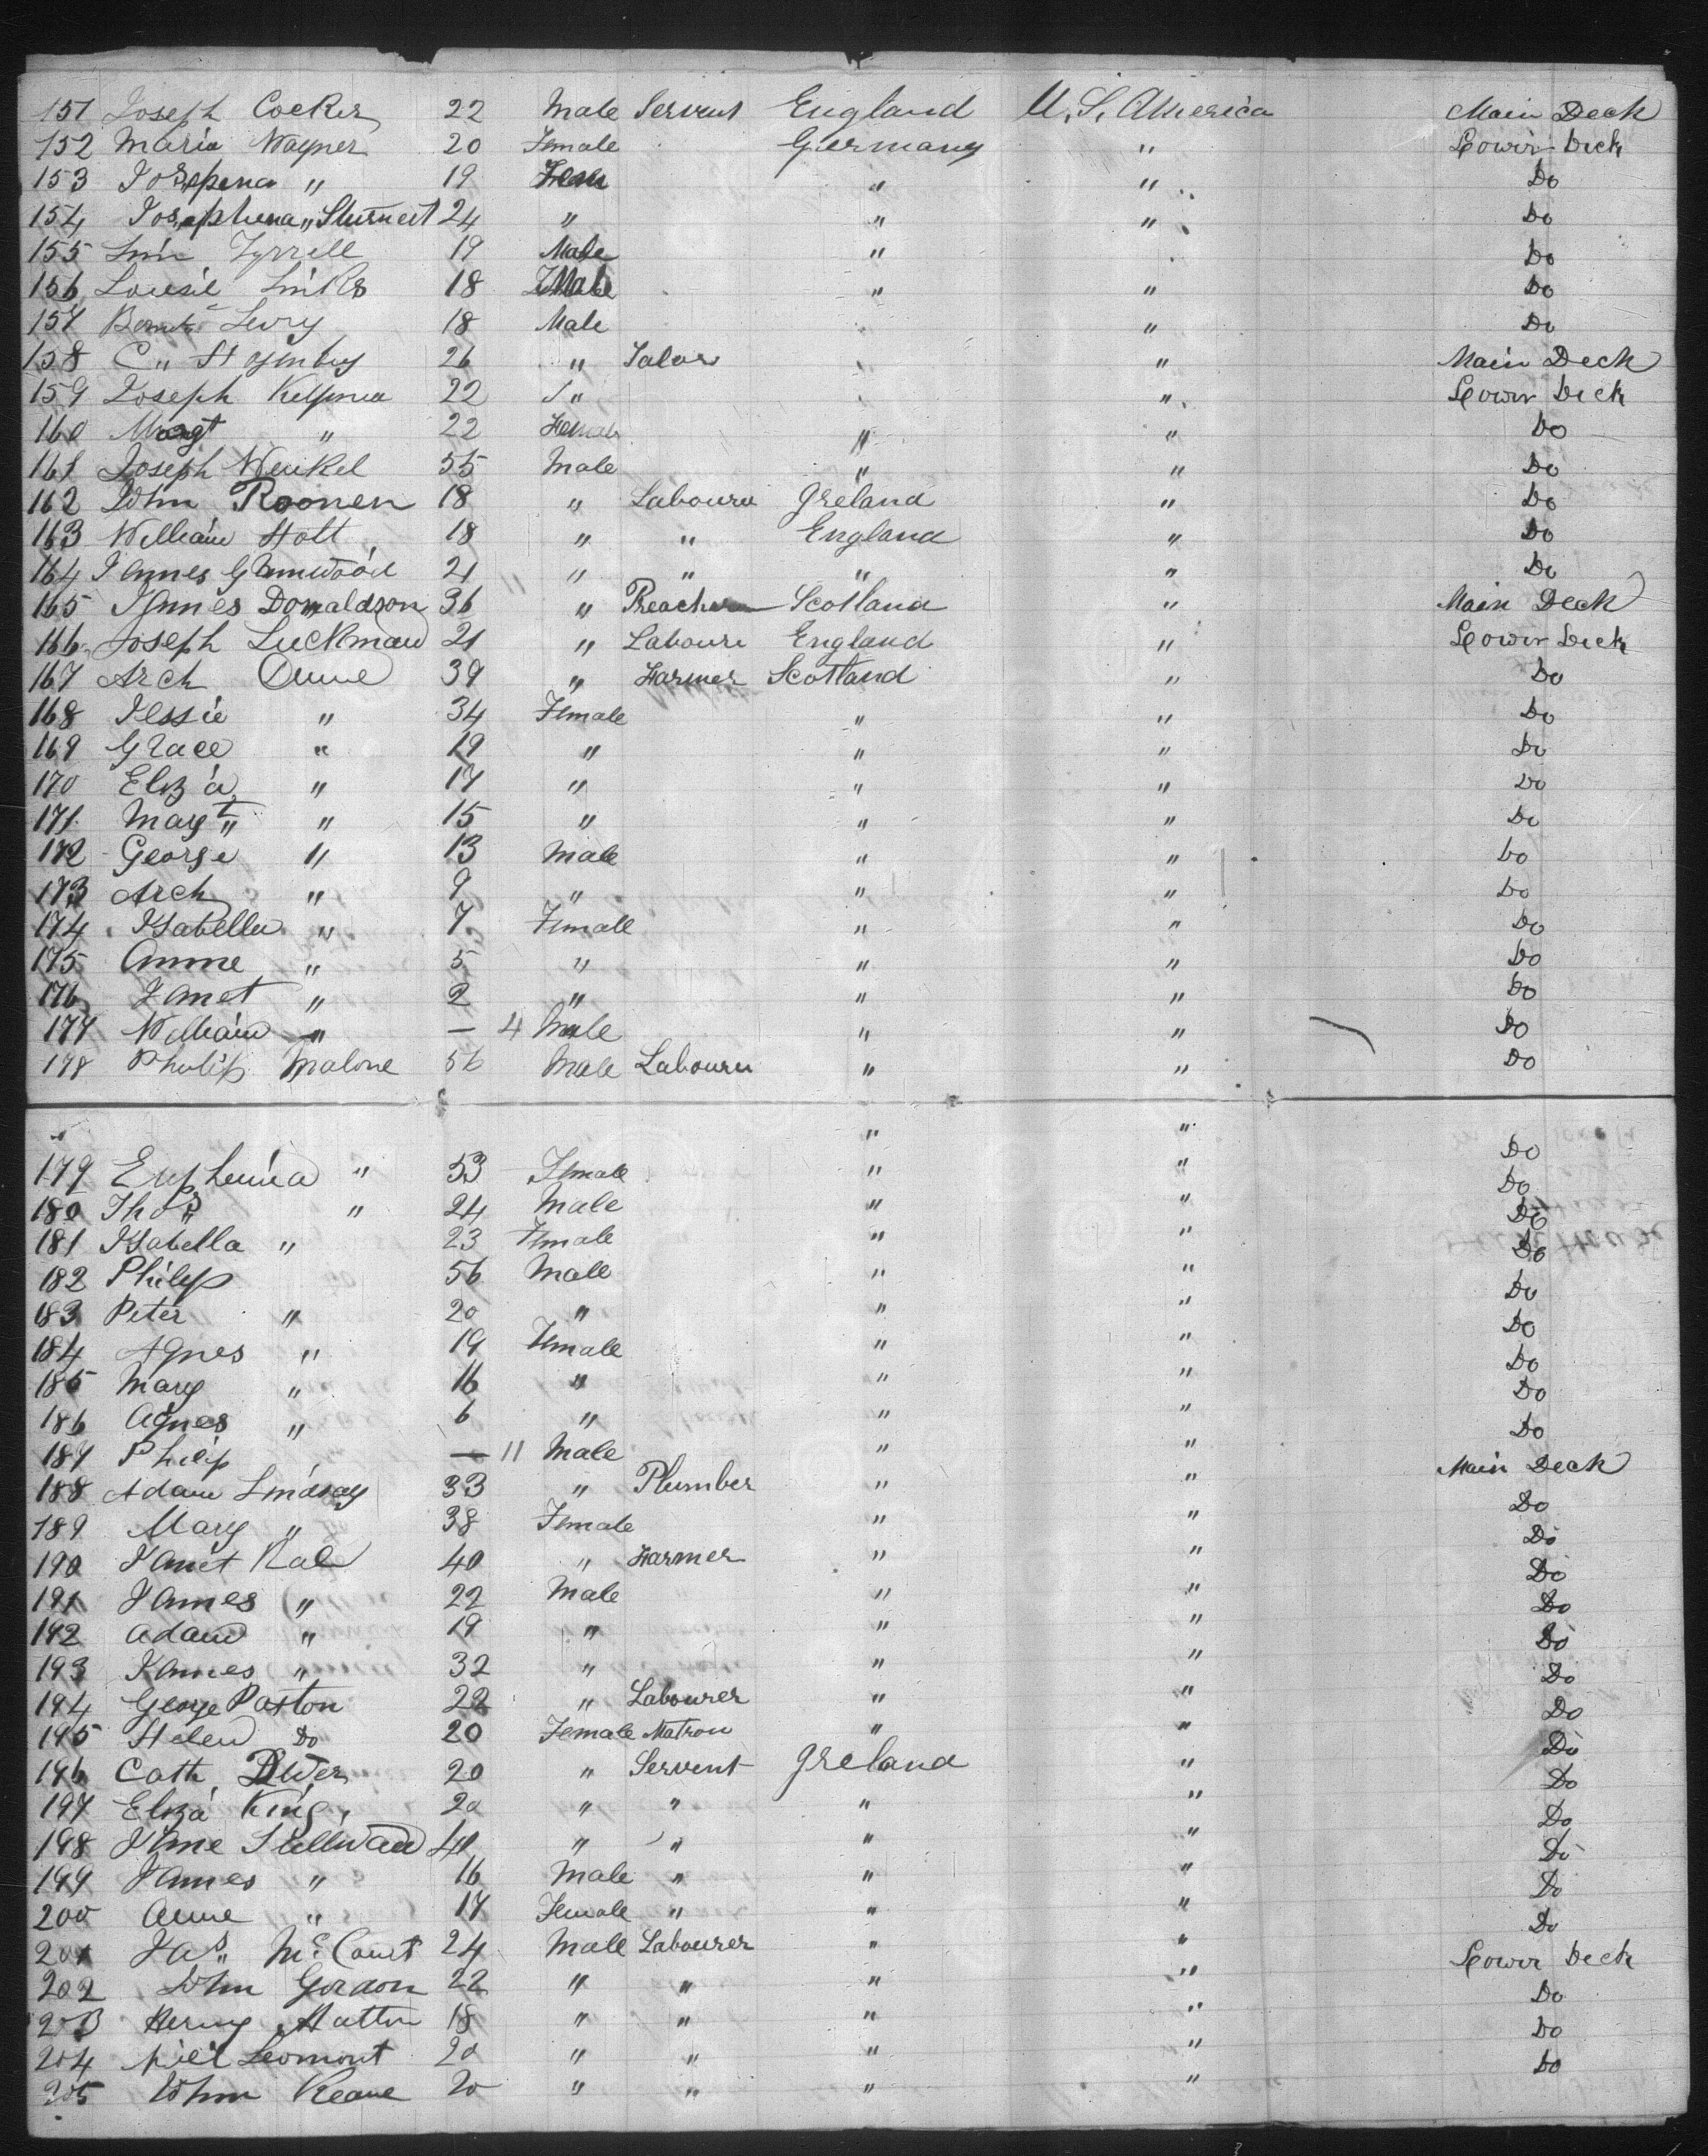 151 Joseph Cocker 22 Male Servent England U.S. America Main Deck
152 Maria Wagner 20 Female Germany " Lower Deck
153 Josepena " 19 " " Do
154 Josephena 24 " " " Do
155 Tyrrell 19 Male " Do
156 Louise Links 18 " " Do
157 Levry 18 Male " Do
158 C " 26 " " Main Deck
159 Joseph 22 " " Lower Deck
160 Margt " 22 Female " " Do
161 Joseph Wenkel 55 Male " " Do
162 John Roonen 18 " Labourer Ireland " Do
163 William Holt 18 " " England " Do
164 James 21 " " " " Do
165 James Donaldson 36 " Preacher Scotland " Main Deck
166 Joseph Luckman 21 " Laboure England " Lower Deck
167 Arch Dunne 39 " Farmer Scotland " Do
168 Jessie " 34 Female " " Do
169 Grace " 19 " " " Do
170 Eliza " 17 " " " Do
171 Magt " 15 " " " Do
172 George " 13 Male " " Do
173 Arch " 9 " " " Do
174 Isabella " 7 Female " " Do
175 Annie " 5 " " " Do
176 Janet " 2 " " " Do
177 William " — 4 Male " " Do
178 Philip Malone 56 Male Labourer " " Do
" "
179 Euphemia " 53 Female " " Do
180 Thos " 24 Male " " Do
181 Isabella " 23 Female " " Do
182 Philip 56 Male " " Do
183 Peter " 20 " " " Do
184 Agnes " 19 Female " " Do
185 Mary " 16 " " " Do
186 Agnes " 6 " " " Do
187 Philip — 11 Male " " Do
188 Adam Lindsay 33 " Plumber " " Main Deck
189 Mary " 38 Female " " Do
190 Janet Rae 40 " Farmer " " Do
191 James " 22 Male " " Do
192 Adam " 19 " " " Do
193 James " 32 " " " Do
194 George Paxton 22 " Labourer " " Do
195 Helen Do 20 Female Matron " " Do
196 Cath 20 " Servent Ireland " Do
197 Eliza King 20 " " " " Do
198 Jane Sullivan 40 " " " " Do
199 James " 16 Male " " " Do
200 Anne " 17 Female " " " Do
201 Jas McCourt 24 Male Labourer " " Do
202 John Gordon 22 " " " " Lower Deck
203 Henry Hatton 18 " " " " Do
204 Leomont 20 " " " " Do
205 John Keane 20 " " " " Do